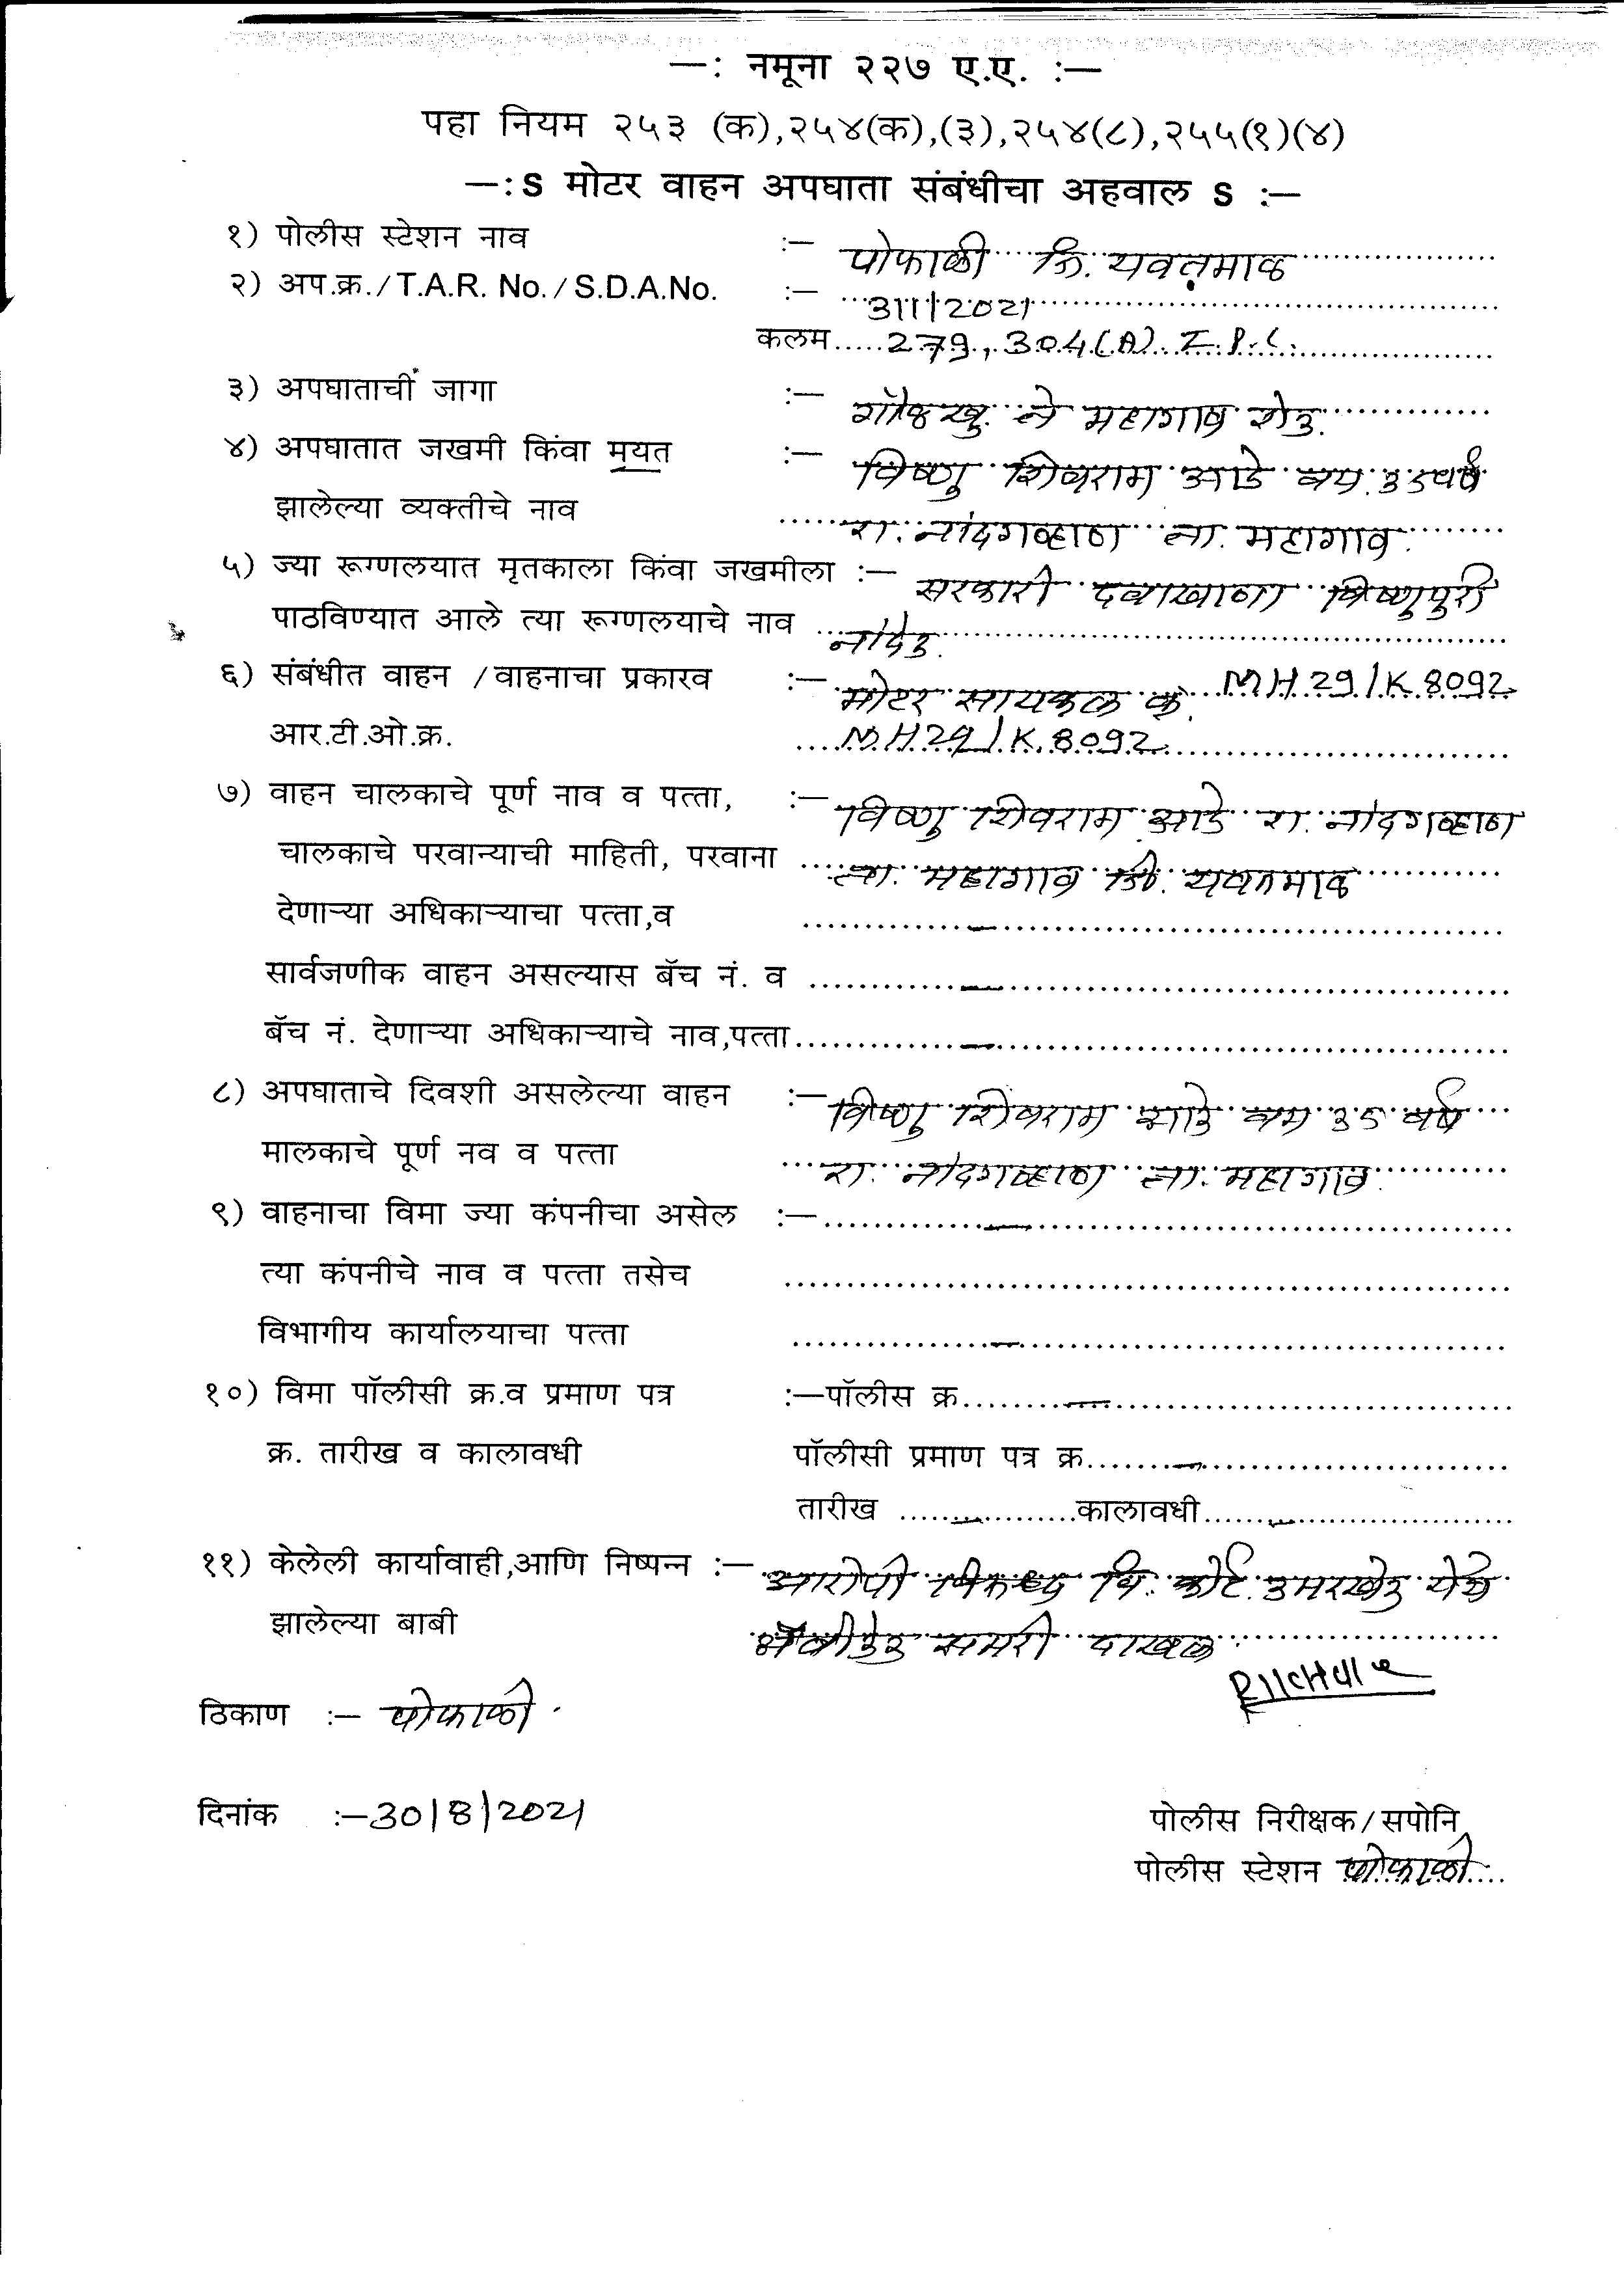 —: नमूना २२७ ए.ए. :—
पहा नियम २५३ (क),२५४(क),(३),२५४(८),२५५(१)(४)
—: S मोटर वाहन अपघाता संबंधीचा अहवाल S :—
१) पोलीस स्टेशन नाव :— पोफाळी जि. यवतमाळ
२) अप.क्र./T.A.R. No./S.D.A.No. :— 311/2021
कलम.....279, 304(A) I.P.C.
३) अपघाताची जागा :— खु. ते महागाव रोड.
४) अपघातात जखमी किंवा मयत :— विष्णु शिवराम आडे वय. 35 वर्ष
झालेल्या व्यक्तीचे नाव रा. नांदगव्हाण ता. महागाव.
५) ज्या रूग्णलयात मृतकाला किंवा जखमीला :— सरकारी दवाखाना विष्णुपुरी
पाठविण्यात आले त्या रूग्णलयाचे नाव नांदेड.
६) संबंधीत वाहन /वाहनाचा प्रकारव :— मोटर सायकल क्र. MH29/K8092
आर.टी.ओ.क्र. MH29/K.8092
७) वाहन चालकाचे पूर्ण नाव व पत्ता, :— विष्णु शिवराम आडे रा. नांदगव्हाण
चालकाचे परवान्याची माहिती, परवाना ता. महागाव जि. यवतमाळ
देणाऱ्या अधिकाऱ्याचा पत्ता,व —
सार्वजणीक वाहन असल्यास बॅच नं. व —
बॅच नं. देणाऱ्या अधिकाऱ्याचे नाव,पत्ता —
८) अपघाताचे दिवशी असलेल्या वाहन :— विष्णु शिवराम आडे वय 35 वर्ष
मालकाचे पूर्ण नव व पत्ता रा. नांदगव्हाण ता. महागाव.
९) वाहनाचा विमा ज्या कंपनीचा असेल :— —
त्या कंपनीचे नाव व पत्ता तसेच
विभागीय कार्यालयाचा पत्ता —
१०) विमा पॉलीसी क्र.व प्रमाण पत्र :—पॉलीस क्र. —
क्र. तारीख व कालावधी पॉलीसी प्रमाण पत्र क्र. —
तारीख — कालावधी —
११) केलेली कार्यावाही,आणि निष्पन्न :— आरोपी विरूध्द वि. कोर्ट उमरखेड येथे
झालेल्या बाबी अॅबीटेड समरी दाखल
ठिकाण :— पोफाळी
दिनांक :—30/8/2021
पोलीस निरीक्षक/सपोनि
पोलीस स्टेशन पोफाळी